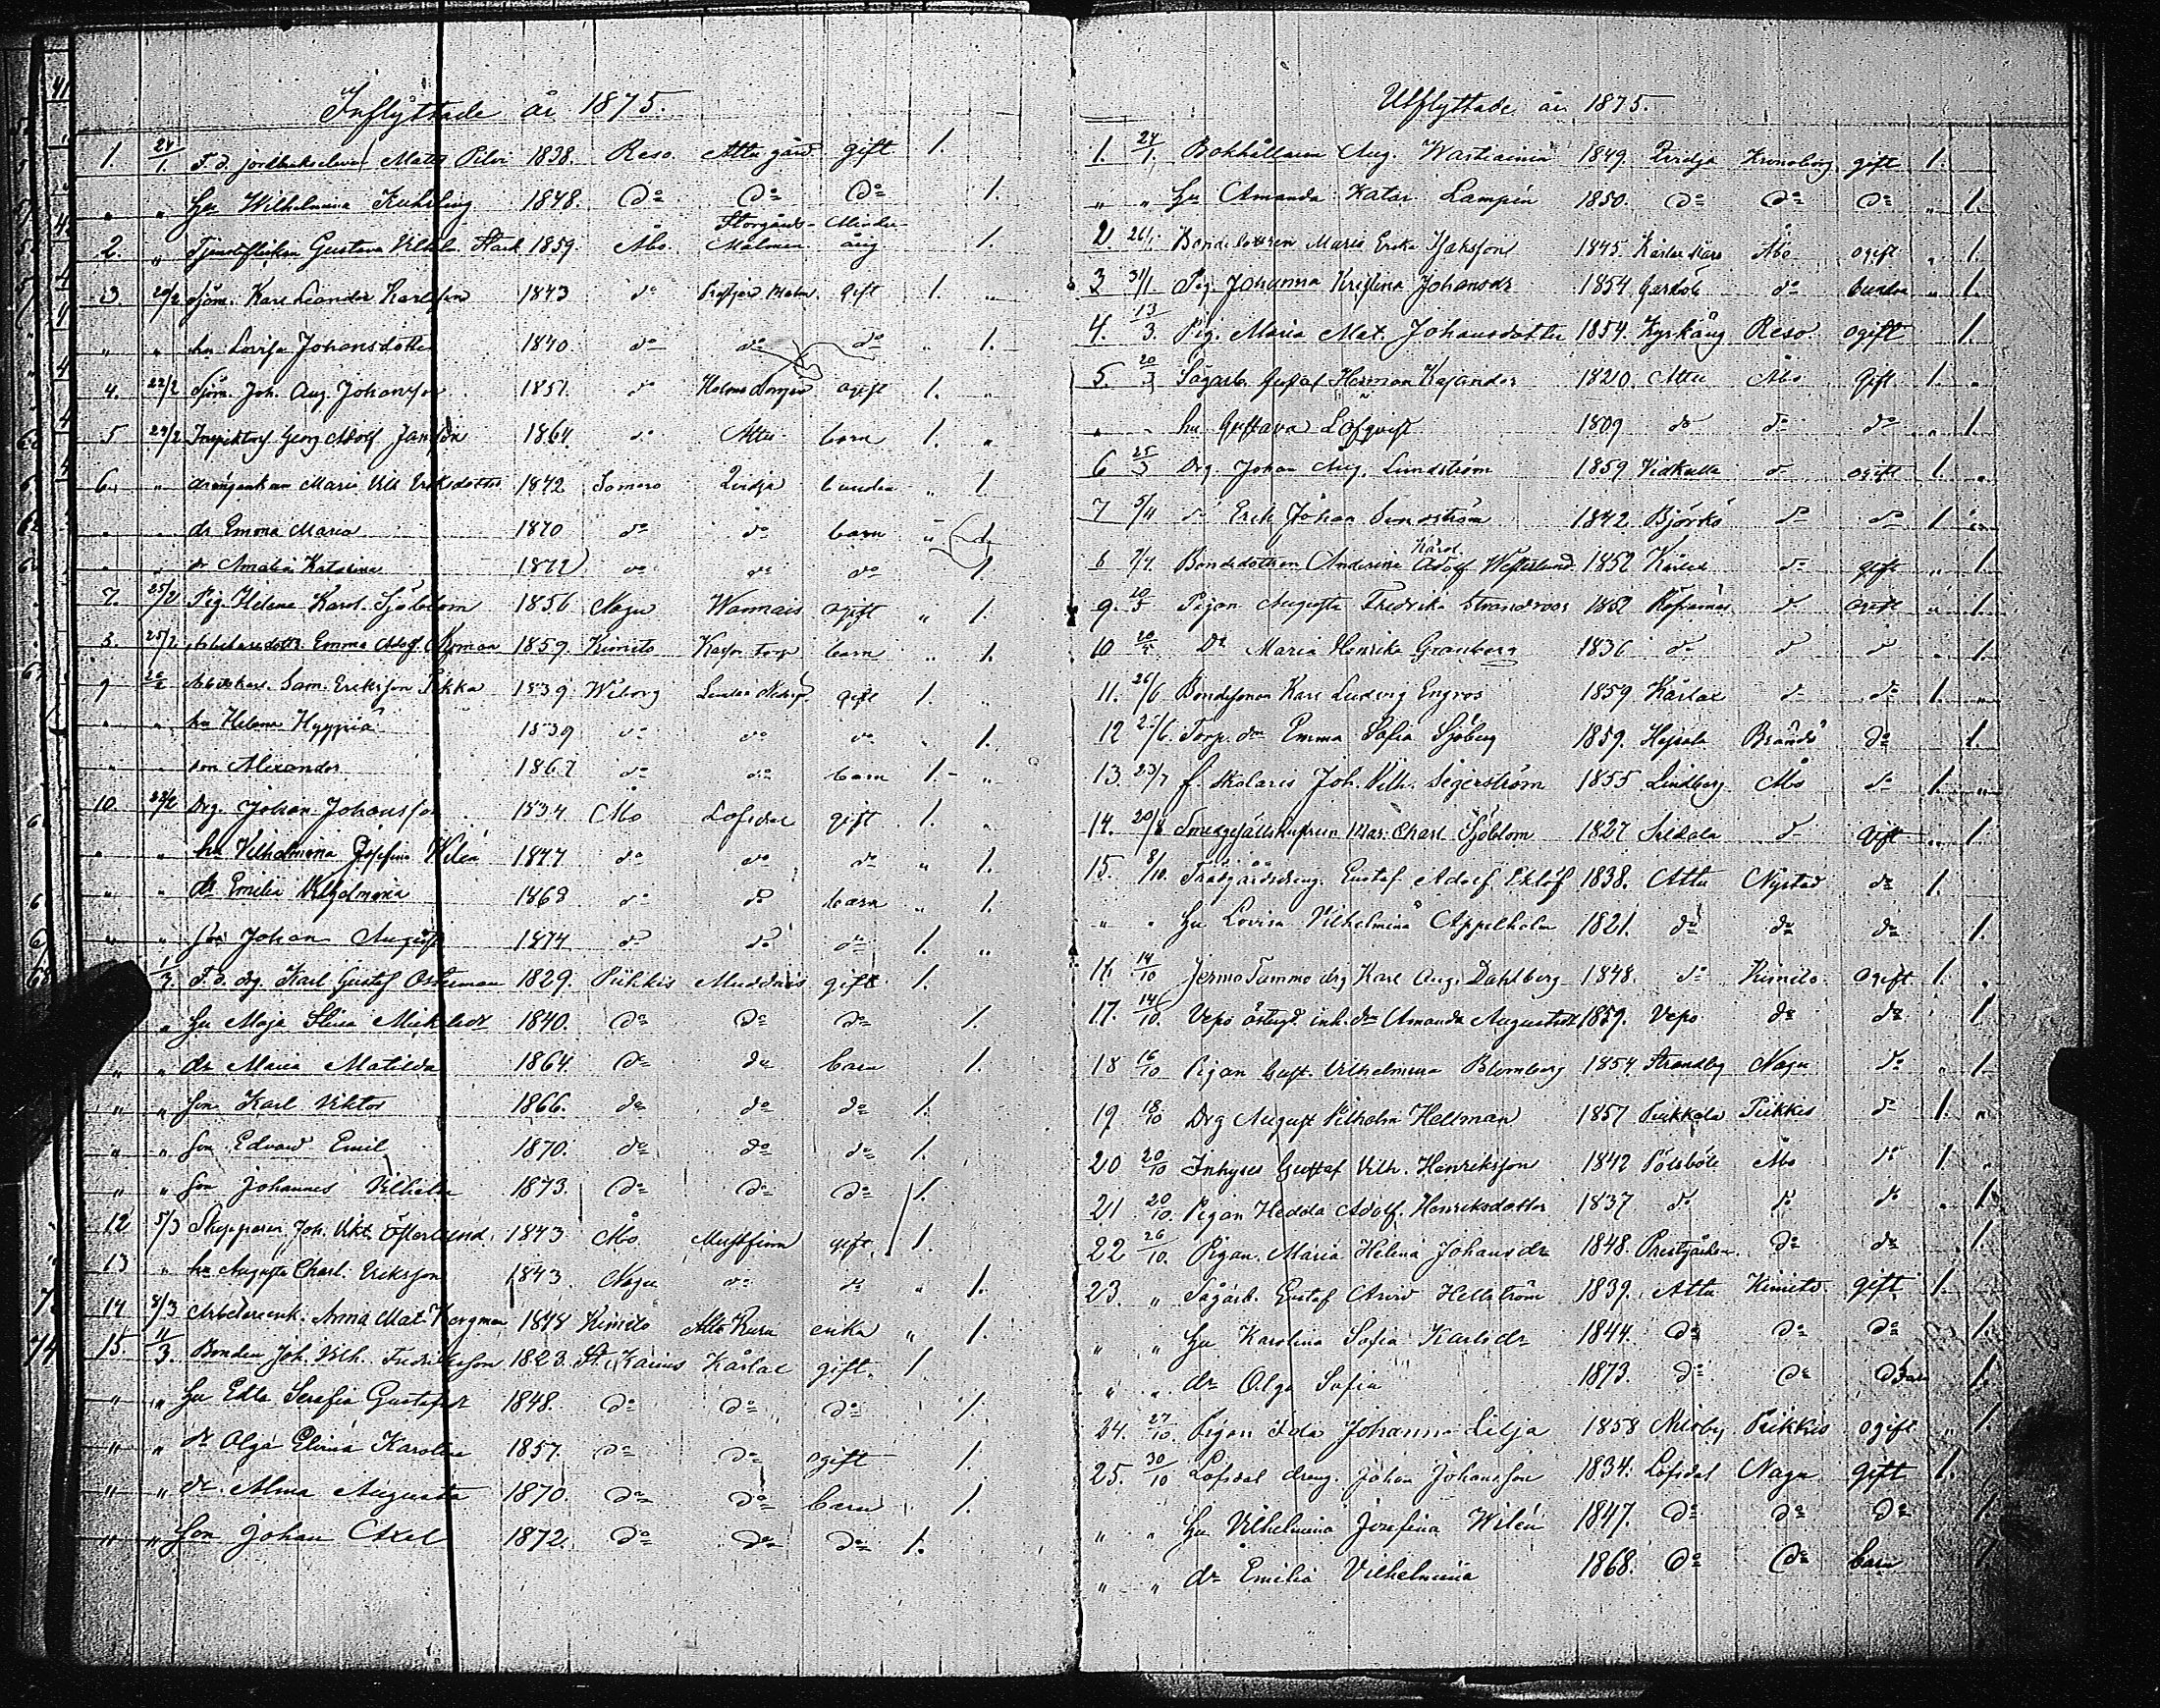 Inflyttade år 1875.
1. 24/1. F. d. jordbrukselever Matts Pilvi 1838. Reso. Attu gård gift 1.
" " Hu Wilhelmina Kuhrling 1848. Do Do Do 1.
2. " Tjensteflickan Gustava Vilhelm. Stark 1859. Åbo. Storgårds-Malmen Minderårig 1.
3 20/2 Sjöm. Karl Leander Karlsson 1843 do Malm. Gift 1. "
" " hu Lovisa Johansdotter 1840. do do do " 1.
4. 22/2 Sjöm. Joh. Aug. Johansson 1851. do ogift 1. "
5 24/2 Georg Adolf Jansson 1864 do Attu barn 1. "
6. " Maria Vilh. Eriksdotter 1842 Somero Qvidja " 1.
" " dr Emma Maria 1870 do do barn " 1.
" " dr Amalia Katarina 1872 do do do 1.
7. 25/2 Pig. Helena Karol. Sjöblom 1856 Nagu Wannais ogift " 1.
8. 25/2 Arbetaredottr. Emma Adolf. 1859. Kimito barn " 1.
9 26/2 Arbetskarl. Sam. Eriksson Pekka 1839 Wiborg gift 1. "
" " hu Helena Hyypiä 1839 do do do " 1.
" " son Alexander 1867 do do barn 1. "
10. 28/2 Drg. Johan Johansson 1834 Åbo Lofsdal gift 1. "
" " hu Vilhelmina Josefina Wilén 1847 do do do " 1.
" " dr Emilia Vilhelmina 1868 do do barn " 1.
" " son Johan August 1874 do do do 1. "
1/3. F. d. drg. Karl Gustaf Österman 1829. Piikkis Muddais gift 1.
" Hu Maja Stina Mickelsdr 1840. Do Do Do 1.
" " dr Maria Matilda 1864. Do do barn 1.
" " son Karl Viktor 1866. do do do 1.
" " son Edvard Emil 1870. do do do 1.
" " son Johannes Vilhelm 1873. Do Do Do 1.
12 5/3 Skepparen Joh. Vikt. Österlund. 1843 Åbo Mustfinn gift 1.
13 " hu Augusta Charl. Eriksson 1843 Nagu do do " 1.
14 8/3 Arbetareenk. Anna Mat. Bergman 1848 Kimito Attu enka " 1.
15. 11/3. Bonden Joh. Vilh. Fredriksson 1823. St. Karins Kårlax gift. 1
" " Hu Edla Serafia Gustafsdr 1848. Do Do Do 1.
" " dr Olga Elvira Karolina 1857. Do Do ogift 1.
" " dr. Alma Augusta 1870. Do Do barn 1.
" " Son Johan Axel 1872. Do Do Do 1.
Utflyttade år 1875.
1. 24/1. Bokhållaren Aug. Wartiainen 1849. Qvidja Kronoborg gift 1.
" " Hu Amanda Katar. Lampén 1850. Do Do Do " 1.
2. 26/1 Bondedottren Maria Erika Isaksson 1845. Kårlax Åbo ogift " 1.
3 31/1 Pig. Johanna Kristina Johansdr 1854 Garsböle do " 1.
4. 13/3. Pig. Maria Mat. Johansdotter 1854. Kyrkäng Reso. ogift 1.
5. 20/3 Sågarb. Gustaf Herman Kajander 1820. Attu Åbo Gift 1. "
" " hu Gustava Löfqvist 1809 do do do " 1.
6 25/3 Drg. Johan Aug. Lundström 1859 Vidkulla do ogift 1. "
7 5/4 do Erik Johan Sundström 1842. Björkö do do 1. "
8 7/4. Bondedottren Anderina Karol. Adolf. Westerlund. 1852 Kårlax do gift " 1.
9. 20/5 Pigan Augusta Fredrika Strandroos 1852 do " 1.
10 20/5 Do Maria Henrika Granberg 1836 do do do " 1.
11. 26/6 Bondesonen Karl Ludvig Engros 1859 Kårlax do do 1. "
12 27/6. Torp. dr Emma Sofia Sjöberg 1859. Hejsala Brändö do 1.
13. 23/7 f. skolaris Joh. Vilh. Segerström 1855 Lindberg Åbo do 1. "
14. 20/8 Smedgesällshustrun Mar. Charl. Sjöblom 1827 Sildala do gift " 1.
15. 8/10. Trädgårdsdreng. Gustaf Adolf Eklöf 1838. Attu Nystad do 1.
" " Hu Lovisa Vilhelmina Appelholm 1821. do do do 1.
16. 14/10 Jermo Tammo drg Karl Aug. Dahlberg 1848. do Kimito. ogift 1. "
17. 14/10. Vepo inh. dr Amanda Augustsdtr 1859. Vepo do do 1
18 16/10 Pigan Gust. Vilhelmina Blomberg 1854 Strandby Nagu do " 1.
19 18/10 Drg August Vilhelm Hellman 1857 Piikkis do 1. "
20 20/10 Inhyses Gustaf Vilh. Henriksson 1842 Pölsböle Åbo do 1. "
21 20/10. Pigan Hedda Adolf. Henriksdotter 1837 do do do " 1.
22 26/10. Pigan. Maria Helena Johansdr 1848. Prestgården. do do " 1.
23. " Sågarb. Gustaf Arvid Hellström 1839. Attu Kimito. gift 1.
" " Hu Karolina Sofia Karlsdr 1844. do do do 1.
" " dr Olga Sofia 1873. do do barn 1.
24. 27/10. Pigan Ida Johanna Lilja 1858 Mielby Piikkis ogift " 1.
25. 30/10 Lofsdal dreng. Johan Johansson 1834. Lofsdal Nagu gift 1.
" " Hu Vilhelmina Josefina Wilén 1847. do do do 1.
" " dr Emilia Vilhelmina 1868. do do barn 1